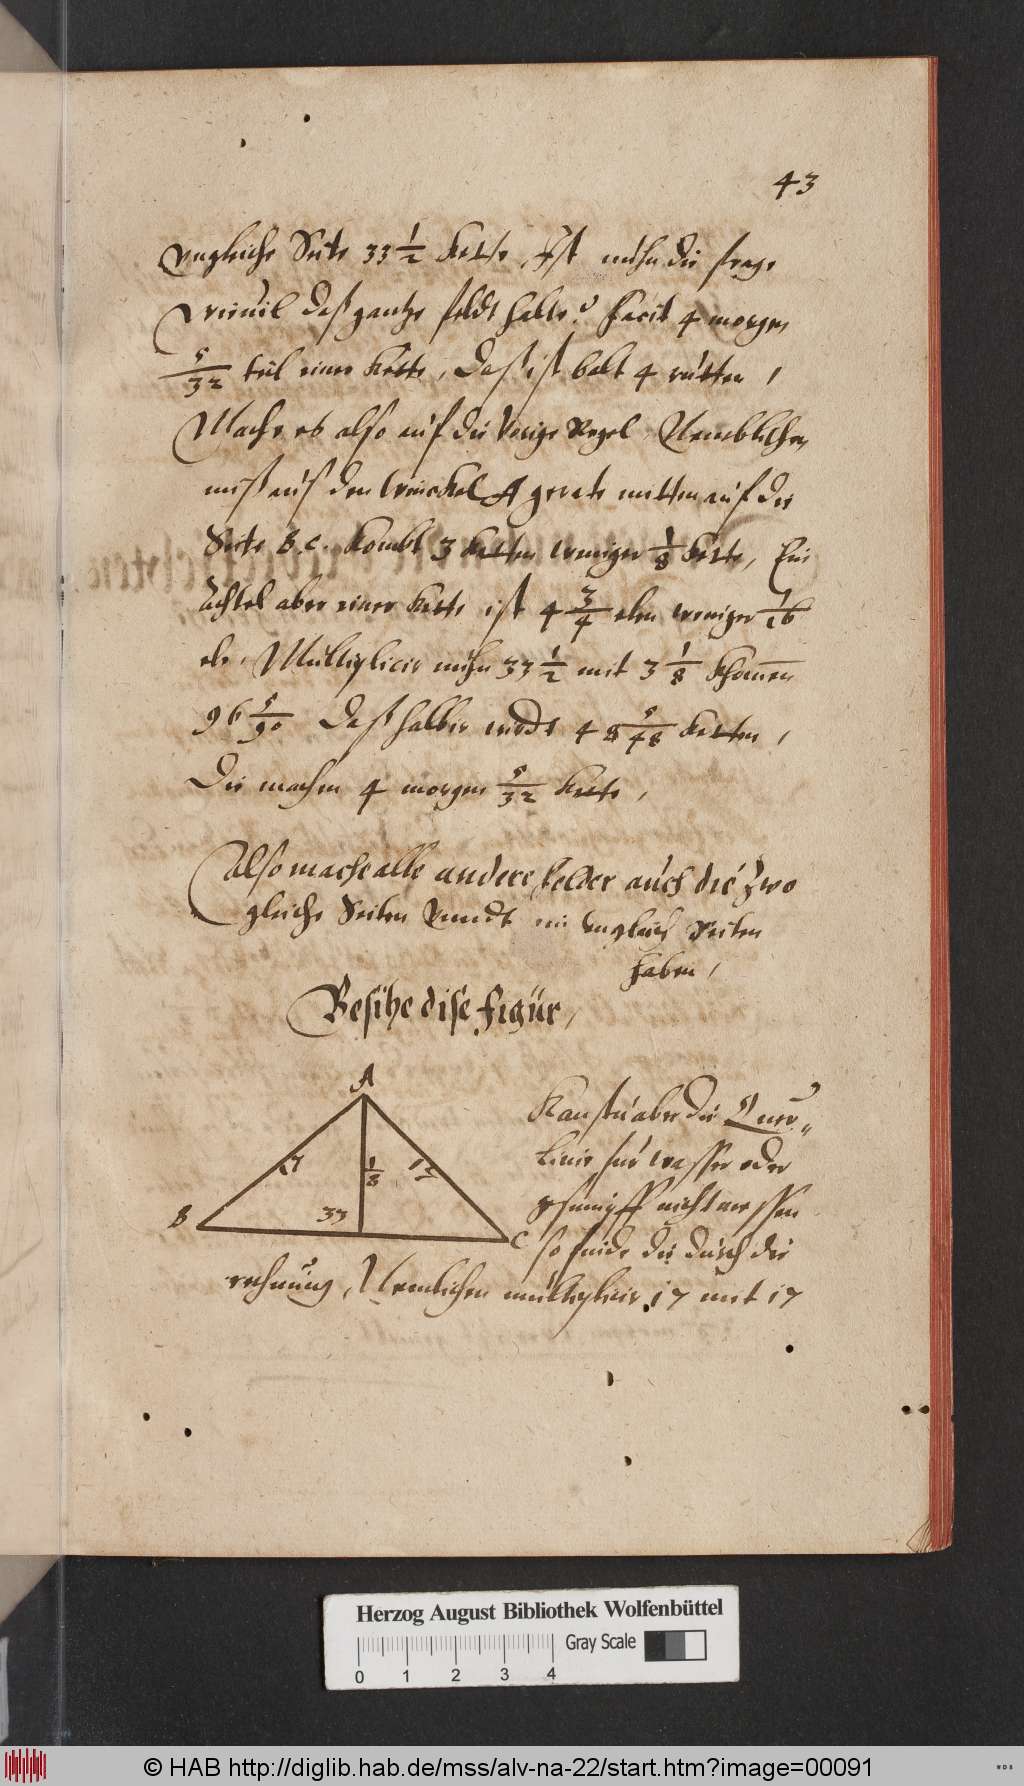 43
Vngleiche Seite 33 1/2 Kette, Ist nuhn die frage
wieuil daß gantze feldt halte? facit 4 morgen
5/32 teil einer Kette, Daß ist balt 4 rutten,
Mache es also auf die Vorige Regel, Nemblichen
miß auß den winckel A gerate mitten auf die
Seite B.C. Kombt 3 Ketten weniger 1/8 Kette, Ein
Achtel aber einer Kette ist 4 3/4 elen weniger 1/16
ele, Multiplicir nuhn 33 1/2 mit 3 1/8 Khomen
96 5/90 Daß halbir wirdt 48 5/48 Ketten,
Die machen 4 morgen 5/32 Kette,
Also mache alle andere felder auch die zwo
gleiche Seiten Vnndt ein Vngleich Seiten
haben,
Besihe dise figur,
A
B
C
17
1/8
17
33
Kanstu aber die Quer
Linie für wasser oder
gsümpff nicht messen
so finde die durch die
rechnung, Nemlichen multiplicir 17 mit 17
Herzog August Bibliothek Wolfenbüttel
Gray Scale
0 1 2 3 4
© HAB http://diglib.hab.de/mss/alv-na-22/start.htm?image=00091